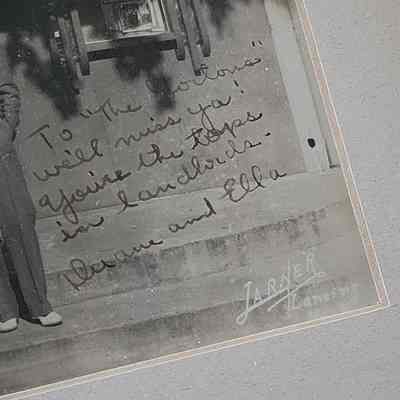 To "The Mortons"
we'll miss ya!
You're the tops
in landlords.
Duane and Ella
LARNER
Lansing